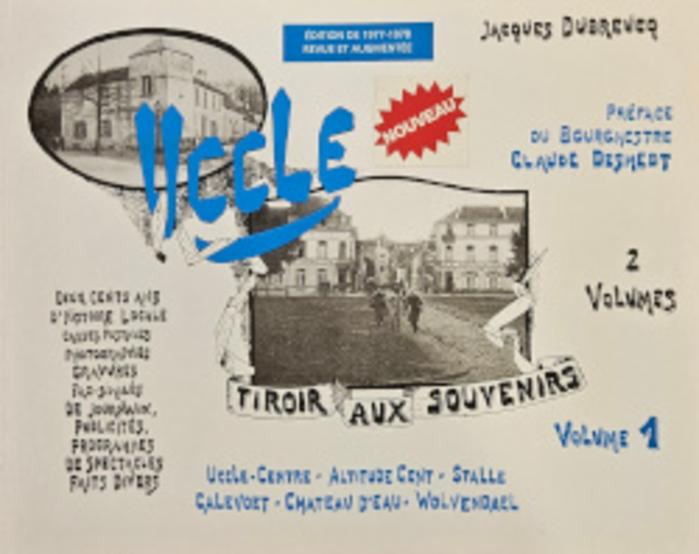 ÉDITION DE 1977-1978
REVUE ET AUGMENTÉE
JACQUES DUBREUCQ
NOUVEAU
UCCLE
PRÉFACE
DU BOURGMESTRE
CLAUDE DESMEDT
2
VOLUMES
DEUX CENTS ANS
D'HISTOIRE LOCALE
CARTES POSTALES
PHOTOGRAPHIES
GRAVURES
FAC-SIMILÉS
DE JOURNAUX,
PUBLICITÉS,
PROGRAMMES
DE SPECTACLES
FAITS DIVERS
TIROIR AUX SOUVENIRS
VOLUME 1
UCCLE-CENTRE - ALTITUDE CENT - STALLE
CALEVOET - CHATEAU D'EAU - WOLVENDAEL